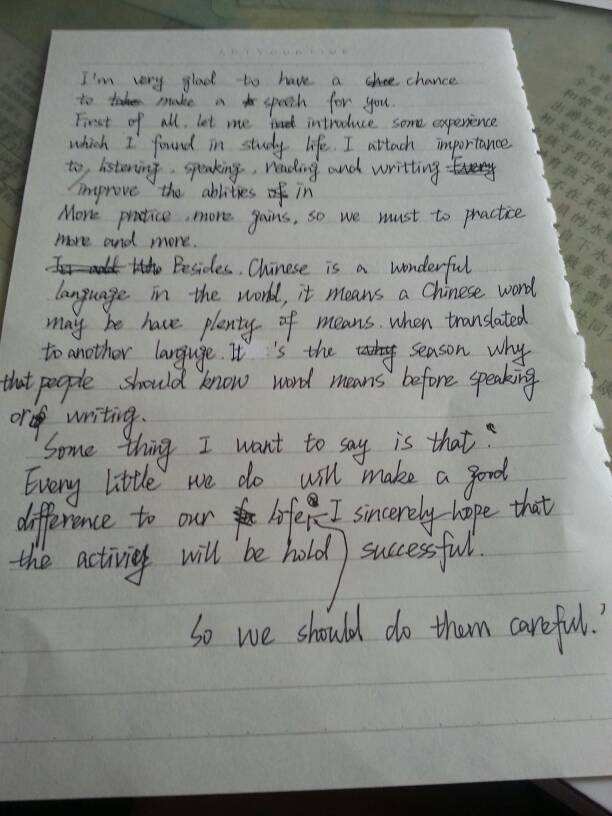 I'm very glad to have a chance
to make a speech for you.
First of all, let me introduce some experience
which I found in study life. I attach importance
to listening, speaking, reading and writting
improve the ablities in
More pratice, more gains, so we must to practice
more and more.
Besides, Chinese is a wonderful
language in the world, it means a Chinese word
may be have plenty of means when translated
to another languge. It 's the season why
that people should know word means before speaking
or writing.
Some thing I want to say is that "
Every little we do will make a good
difference to our life. I sincerely hope that
the activiey will be hold successful.
So we should do them careful."